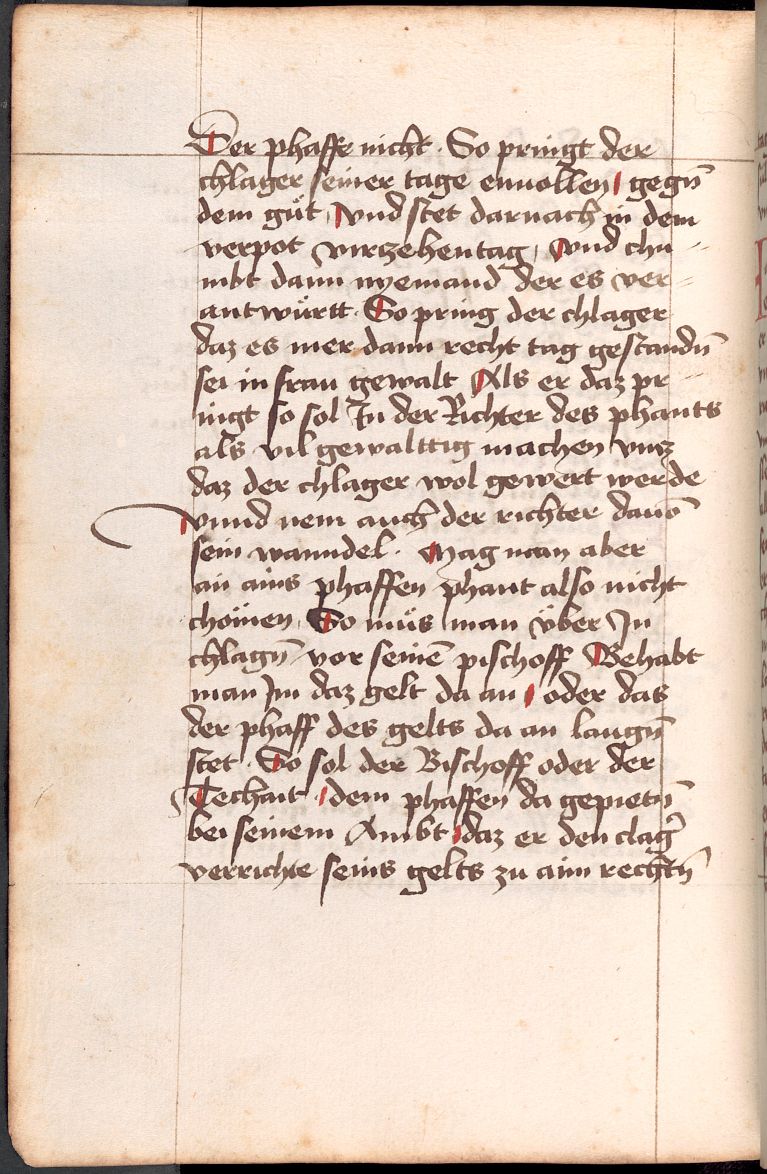 Der phaffe nicht · So pringt der
chlager seiner tage ennollen / gegn̄
dem güt / vnd stet darnach in dem
verpot virczehentag / vnd chu=
mbt dann nyemand der es ver=
antwürtt · So pring der chlager
daz es mer dann recht tag gestandn̄
sei in fran gewalt Als er daz pr=
ingt so sol In der Richter des phants
als vil gewalttig machen vncz
daz der chlager wol gewert werde
vnnd nem auch der richter dauō
sein wanndel · Mag man aber
an ains phaffen phant also nicht
chömen / So müs man über In
chlagn̄ vor seinē pischoff Behabt
man Im daz gelt da an / oder das
der phaff des gelts da an laugn̄
stet · So sol der Bischoff oder der
Techant / dem phaffen da gepietn̄
bei seinem Ambt / daz er den claḡ
verrichte seins gelts zu aim rechtn̄